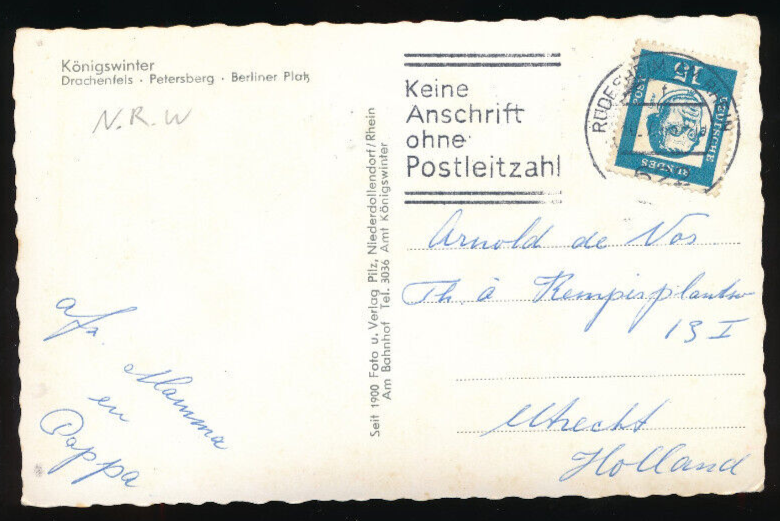 Königswinter
Drachenfels · Petersberg · Berliner Platz
N.R.W
afz. Mamma
en
Pappa
Seit 1900 Foto u. Verlag Pilz, Niederdollendorf/Rhein
Am Bahnhof Tel. 3036 Amt Königswinter
Keine
Anschrift
ohne
Postleitzahl
RÜDESHEIM
15
DEUTSCHE
BUNDES
Arnold de Vos
Th. à Kempisplantsn
13 I
Utrecht
Holland